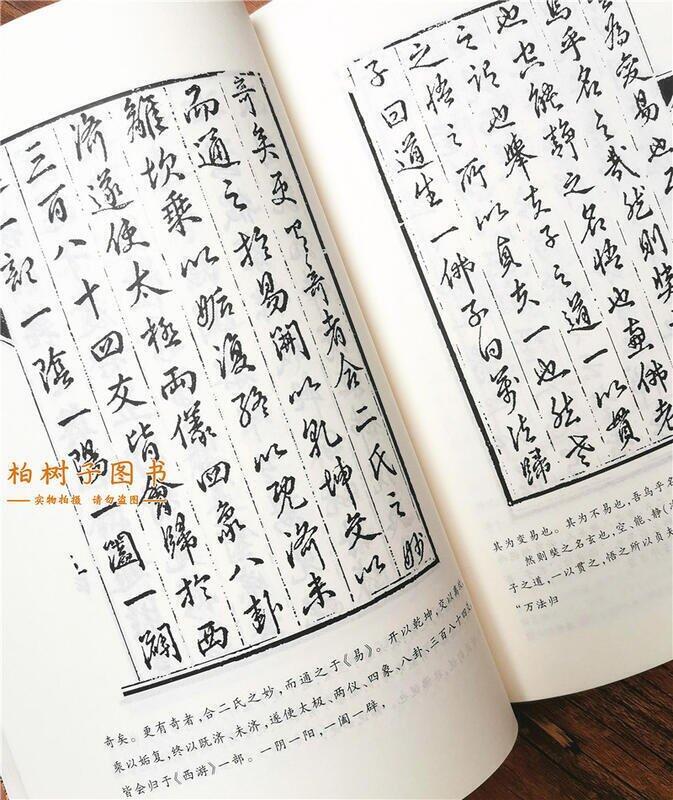 為變易也
烏乎名之哉然則奘
也空能静之名悟也佛老
之也舉夫子之道一以貫
之悟之所以貞夫一也然老
子曰道生一佛子曰萬法歸
其为变易也。其为不易也，吾乌乎名
然则奘之名玄也，空、能、静(
子之道，一以贯之，悟之所以贞夫
“万法归
奇矣更有奇者合二氏之妙
而通之於易開以乾坤交以
離坎乘以姤復終以既濟未
濟遂使太極兩儀四象八卦
三百八十四爻皆會歸於西
一陰一陽一闔一闢
奇矣。更有奇者，合二氏之妙，而通之于《易》。开以乾坤，交以离坎，
乘以姤复，终以既济、未济，遂使太极、两仪、四象、八卦、三百八十四爻，
皆会归于《西游》一部。一阴一阳，一阖一辟，
柏树子图书
实物拍摄 请勿盗图